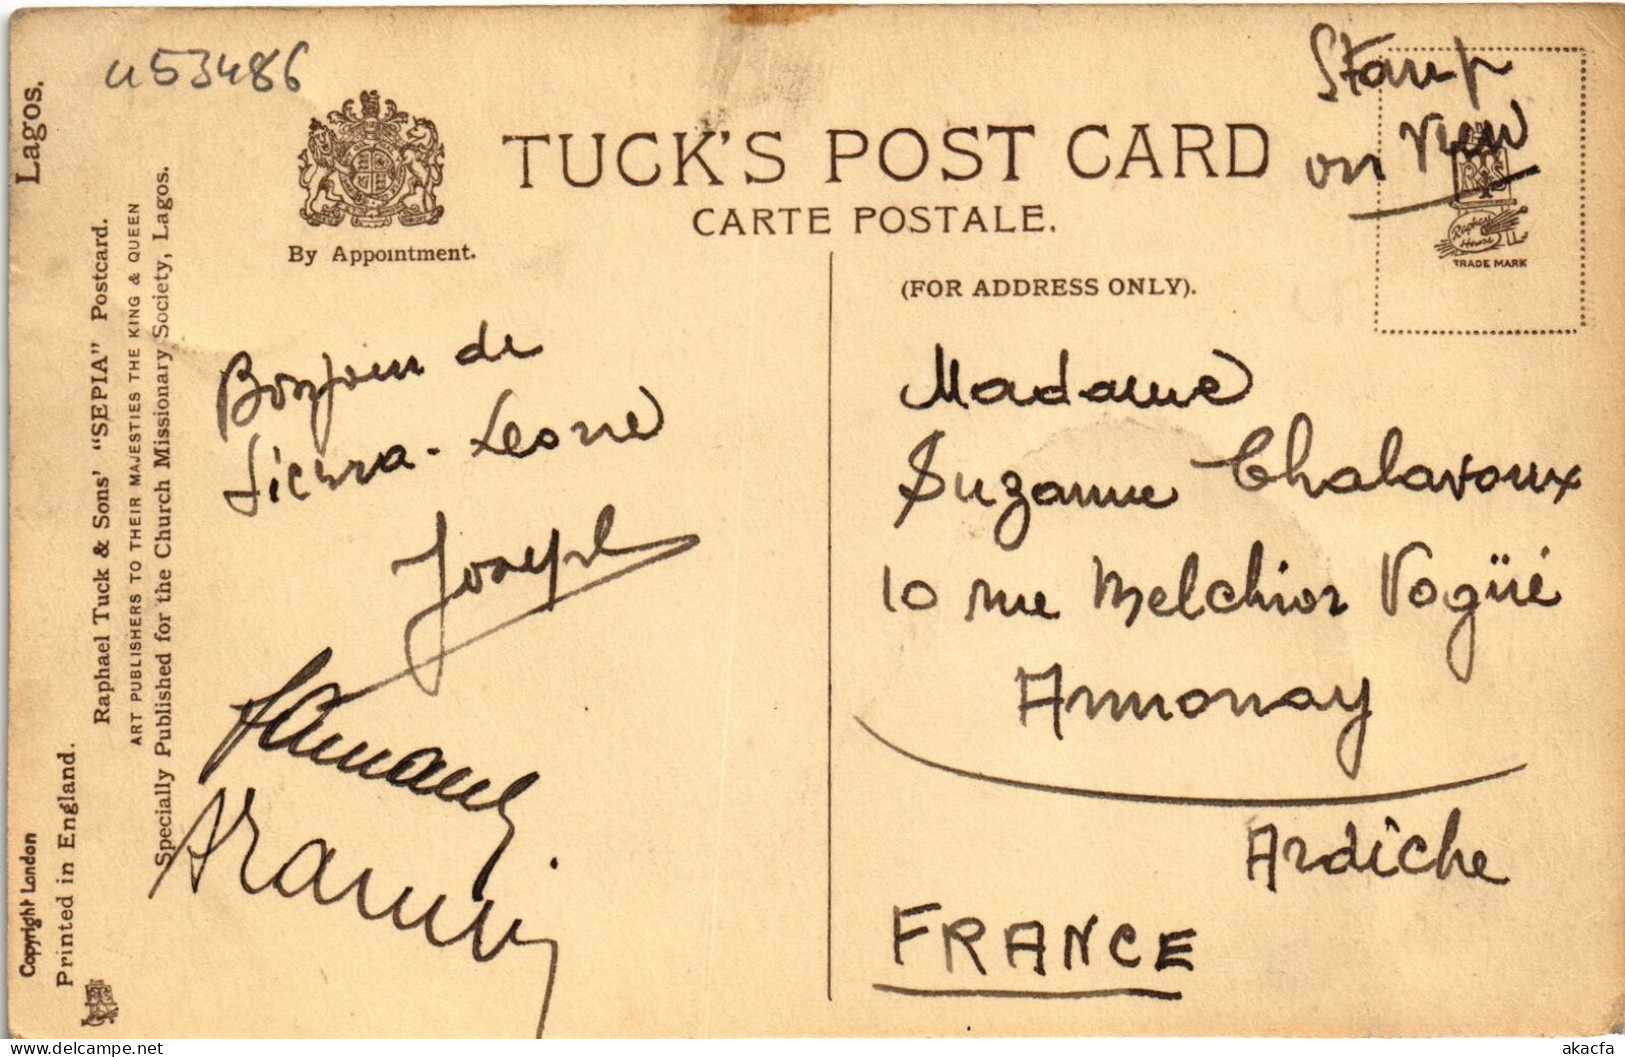 u53486
Stamp
on view
TUCK'S POST CARD
CARTE POSTALE.
By Appointment.
(FOR ADDRESS ONLY).
R S
Raphael
House
TRADE MARK
Lagos.
Raphael Tuck & Sons' "SEPIA" Postcard.
ART PUBLISHERS TO THEIR MAJESTIES THE KING & QUEEN
Specially Published for the Church Missionary Society, Lagos.
Copyright London
Printed in England.
Bonjour de
Sierra-Leone
Joseph
Madame
Suzanne Chalavoux
10 rue Melchior Vogüé
Annonay
Ardèche
FRANCE
akacfa